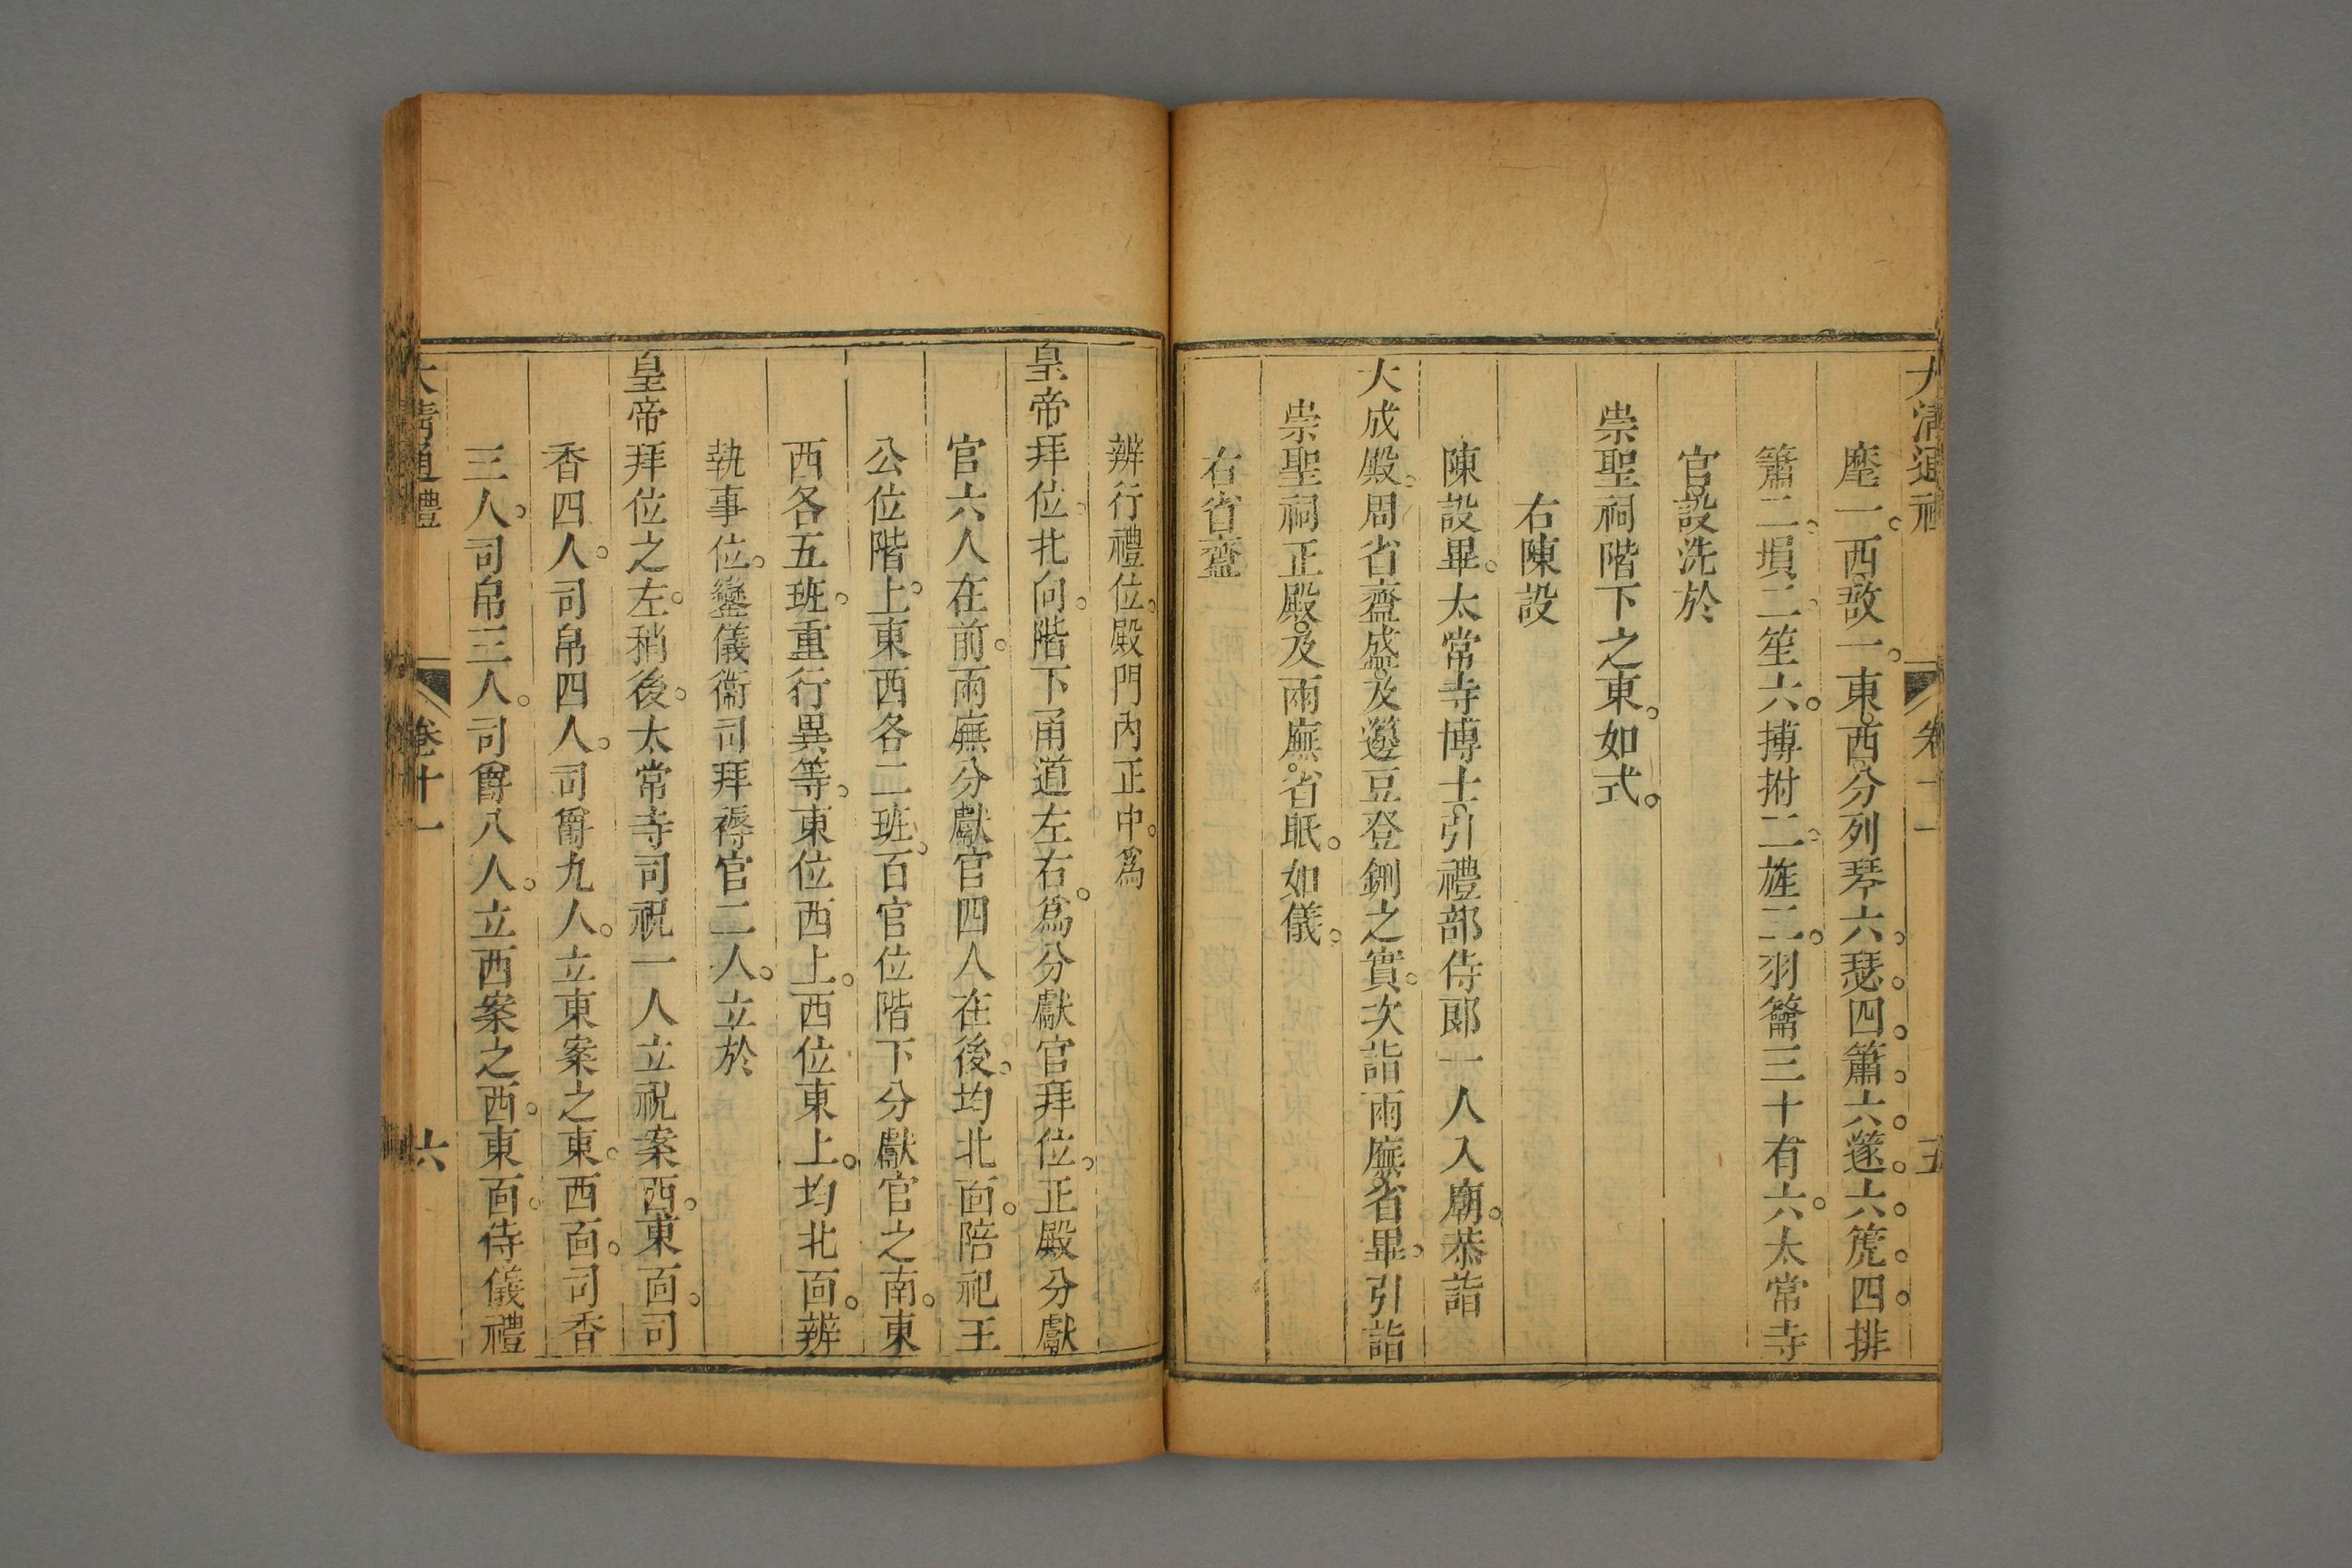 大清通禮 卷十一 五
麾一。西敔一。東西分列琴六。瑟四。簫六。篴六。篪四。排
簫二。塤二。笙六。搏拊二。旌二。羽籥三十有六。太常寺
官。設洗於
崇聖祠階下之東。如式。
右陳設
陳設畢。太常寺博士。引禮部侍郎一人入廟。恭詣
大成殿。周省齍盛。及籩豆登鉶之實。次詣兩廡。省畢。引詣
崇聖祠正殿。及兩廡。省眂。如儀。
右省齍
辨行禮位。殿門內正中。爲
皇帝拜位。北向。階下甬道左右。爲分獻官拜位。正殿分獻
官六人在前。兩廡分獻官四人在後。均北面。陪祀王
公位階上。東西各二班。百官位階下分獻官之南。東
西各五班。重行異等。東位西上。西位東上。均北面。辨
執事位。鑾儀衞司拜褥官二人。立於
皇帝拜位之左。稍後。太常寺司祝一人立祝案西。東面。司
香四人。司帛四人。司爵九人。立東案之東。西面。司香
三人。司帛三人。司爵八人。立西案之西。東面。侍儀禮
大清通禮 卷十一 六